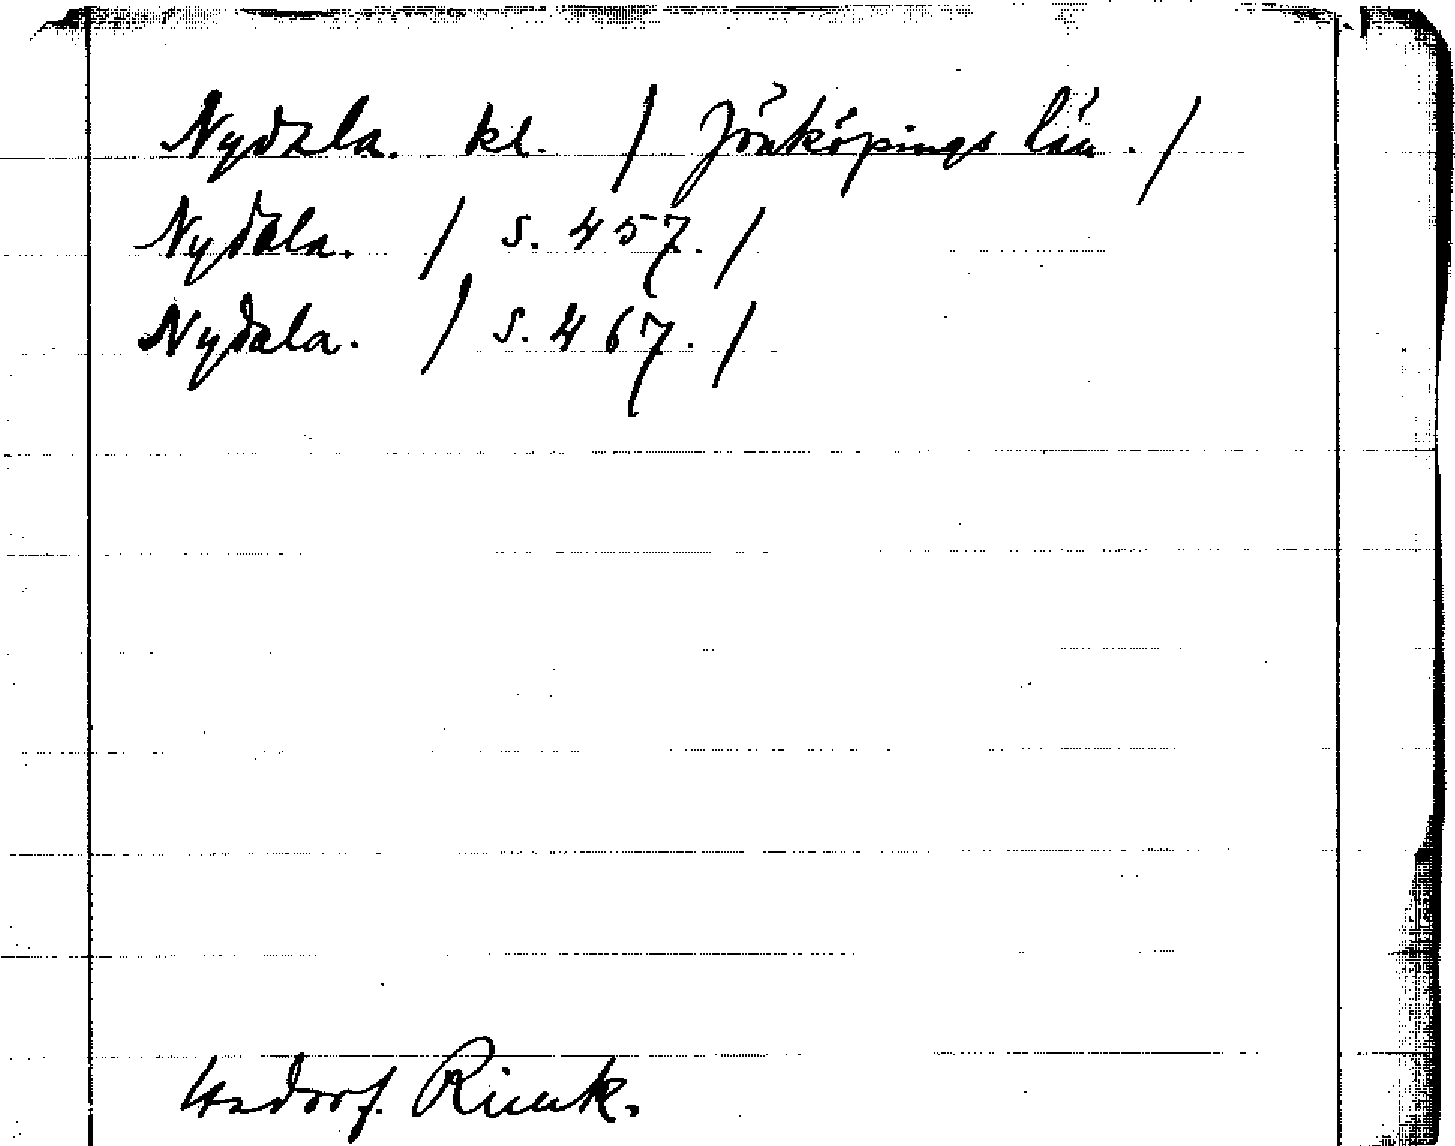 Nydala. kl. / Jönköpings län. /
Nydala. / s. 457. /
Nydala. / s. 467. /
Hadorf. Rimk.